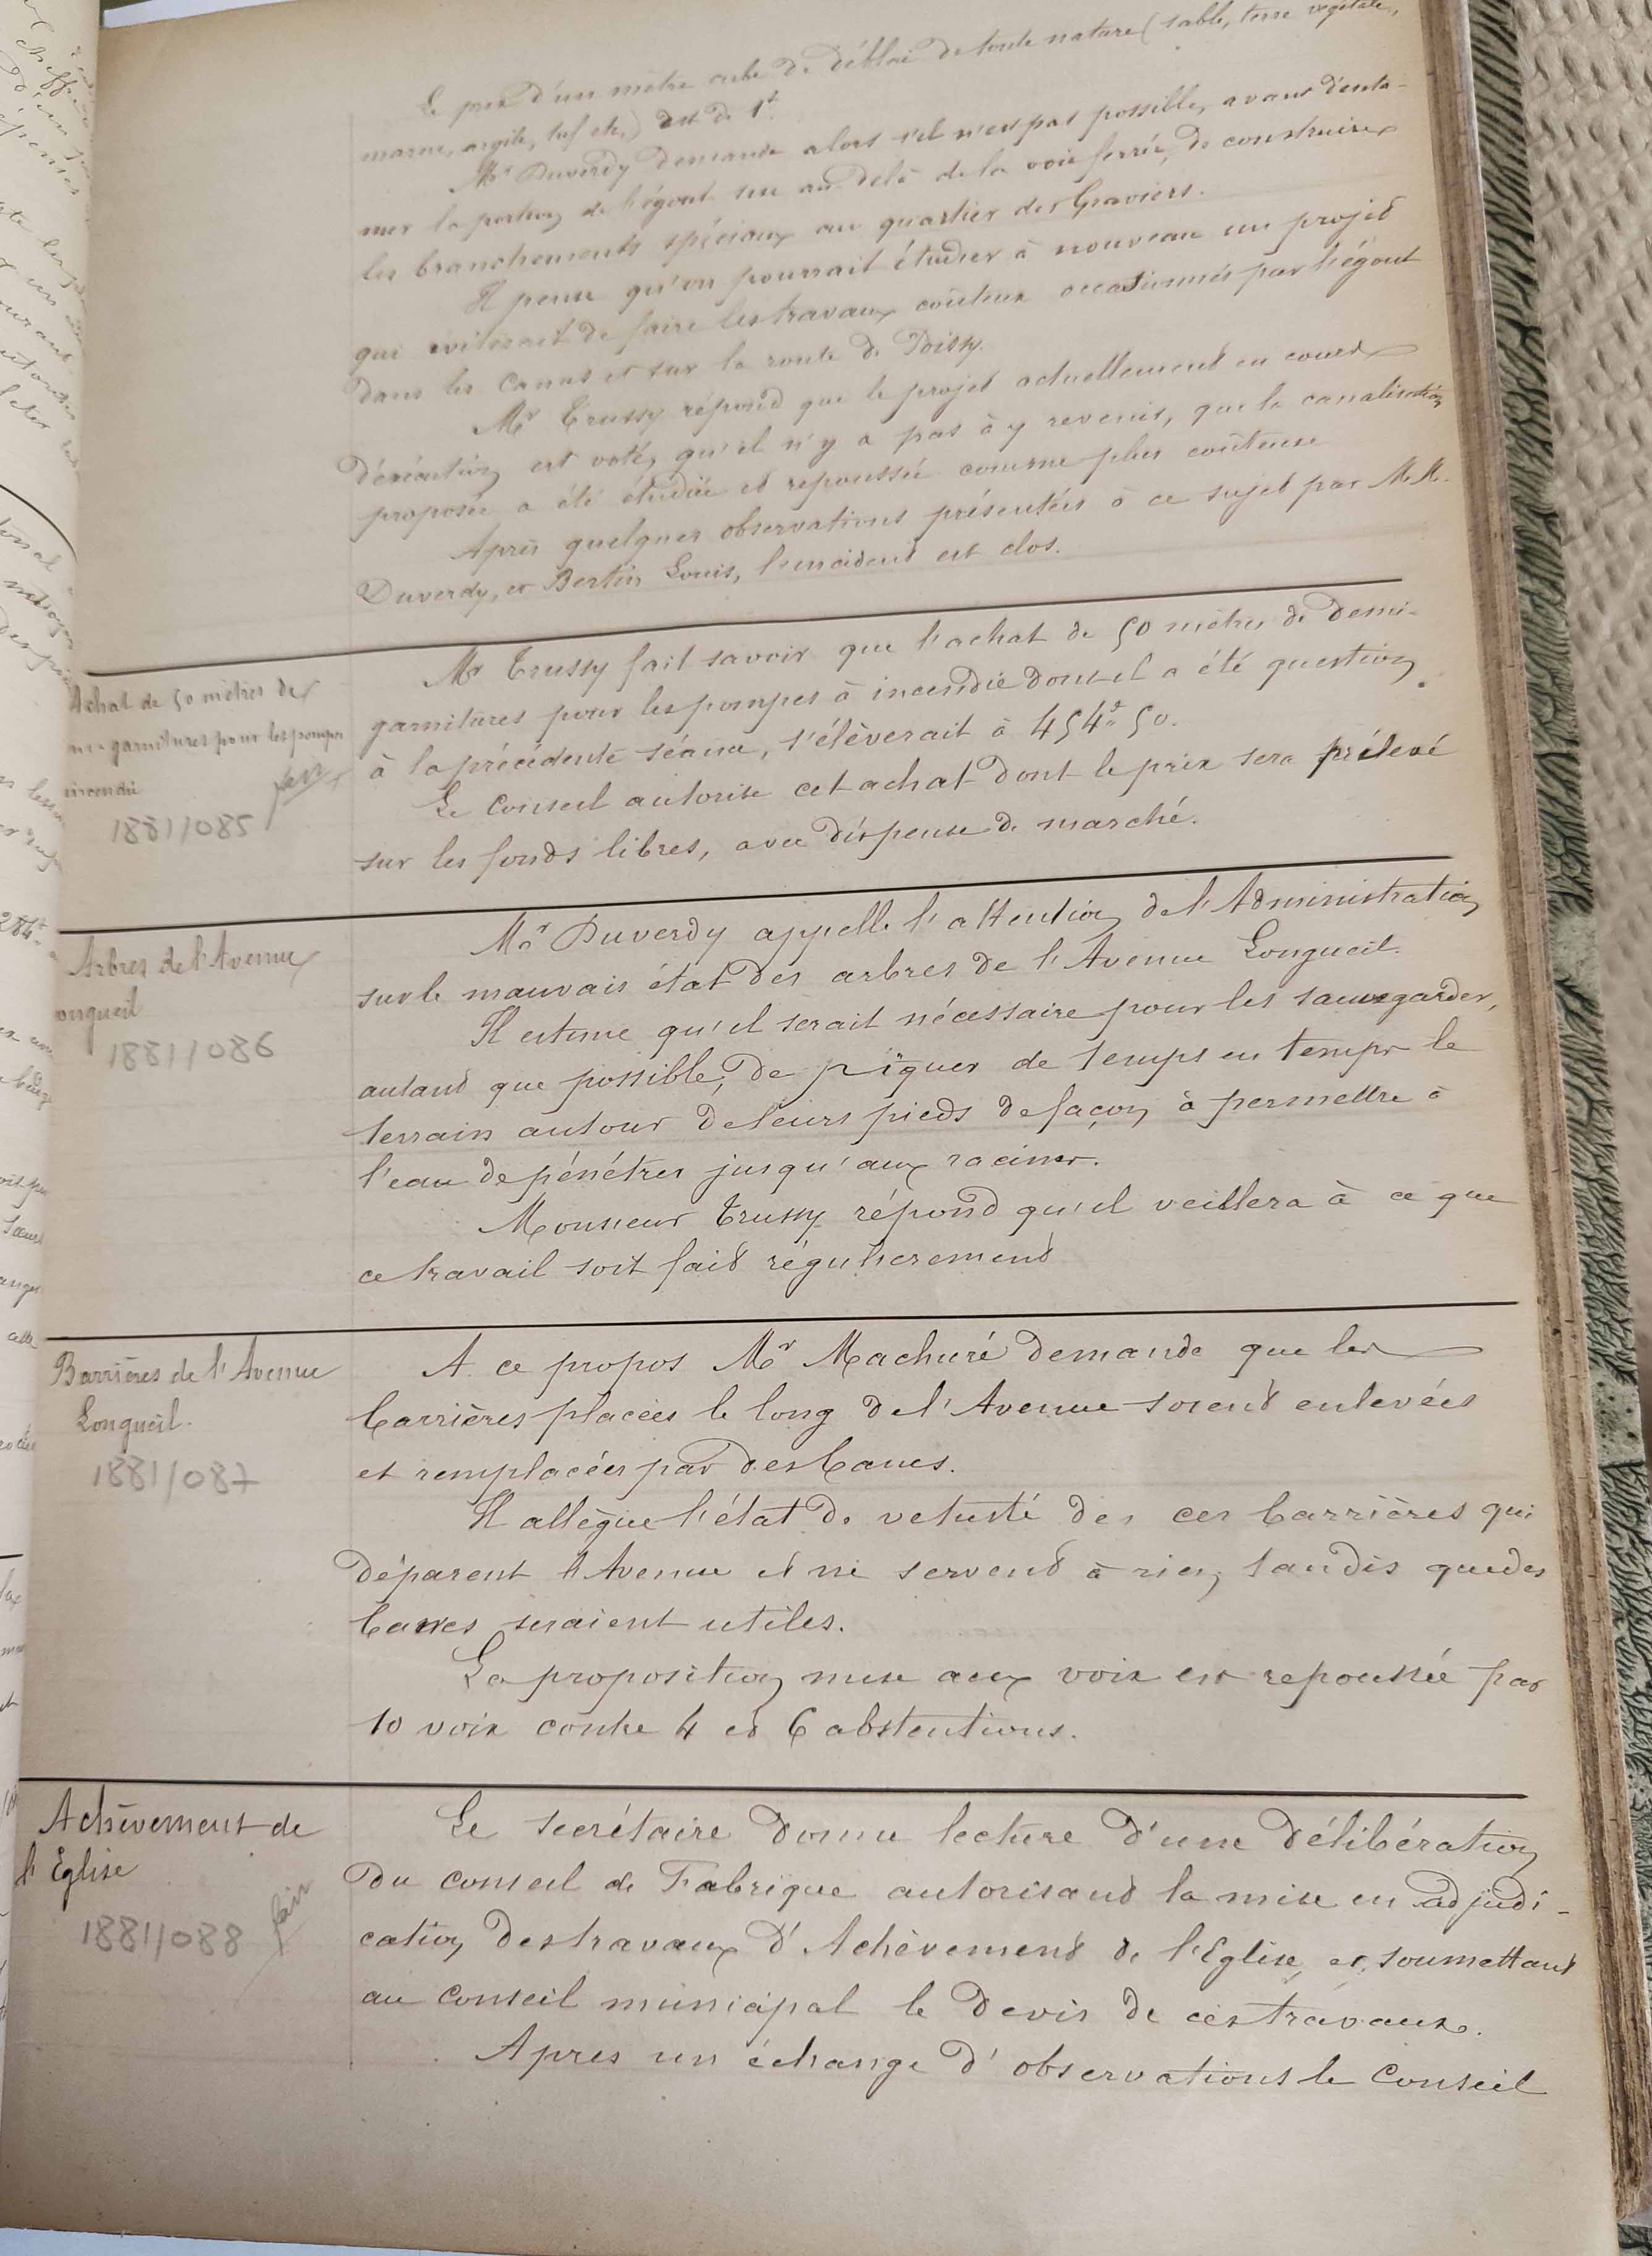 Le prix d'un mètre cube de déblai de toute nature (sable, terre végétale,
marne, argile, tuf etc.) est de 1f.
Mr Duverdy demande alors s'il n'est pas possible, avant d'enta-
mer la portion de l'égout sise au delà de la voie ferrée, de construire
les branchements spéciaux au quartier des Graviers.
Il pense qu'on pourrait étudier à nouveau un projet
qui éviterait de faire les travaux coûteux occasionnés par l'égout
dans les Canus et sur la route de Poissy.
Mr Trussy répond que le projet actuellement en cours
d'exécution est voté, qu'il n'y a pas à y revenir, que la canalisation
proposée a été étudiée et repoussée comme plus coûteuse
Après quelques observations présentées à ce sujet par M.M.
Duverdy, et Bertin Louis, l'incident est clos.
Achat de 50 mètres de
garnitures pour les pompes
incendie
18811085
Mr Trussy fait savoir que l'achat de 50 mètres de demi-
garnitures pour les pompes à incendie dont il a été question
à la précédente séance, s'élèverait à 454f 50.
Le Conseil autorise cet achat dont le prix sera prélevé
sur les fonds libres, avec dispense de marché.
Arbres de l'Avenue
ongueil
18811086
Mr Duverdy appelle l'attention de l'Administration
sur le mauvais état des arbres de l'Avenue Longueil.
Il estime qu'il serait nécessaire pour les sauvegarder,
autant que possible, de piquer de temps en temps le
terrain autour de leurs pieds de façon à permettre à
l'eau de pénétrer jusqu'aux racines.
Monsieur Trussy répond qu'il veillera à ce que
ce travail soit fait régulierement
Barrières de l'Avenue
Longueil.
18811087
A ce propos Mr Machuré demande que les
barrières placées le long de l'Avenue soient enlevées
et remplacées par des bancs.
Il allègue l'état de vetusté des ces barrières qui
déparent l'Avenue et ne servent à rien, tandis que des
bancs seraient utiles.
La proposition mise aux voix est repoussée par
10 voix contre 4 et 6 abstentions.
Achèvement de
l'Eglise
18811088
Le secrétaire donne lecture d'une délibération
du conseil de Fabrique autorisant la mise en adjudi-
cation des travaux d'Achèvement de l'Eglise, et soumettant
au conseil municipal le devis de ces travaux.
Après un échange d'observations le Conseil